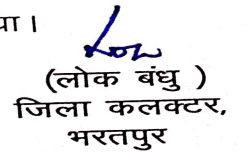 या।
(लोक बंधु )
जिला कलक्टर,
भरतपुर